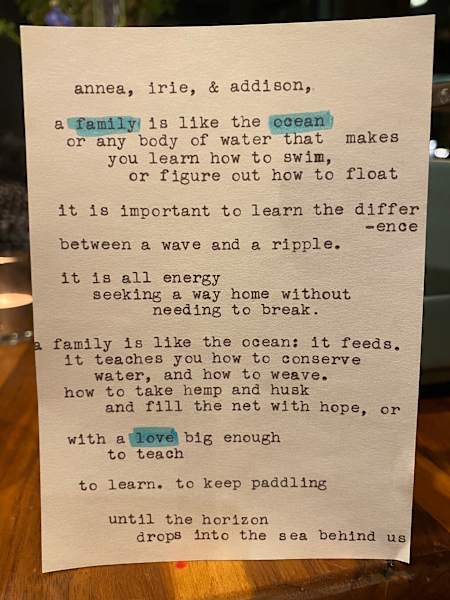 annea, irie, & addison,
a family is like the ocean
or any body of water that makes
you learn how to swim,
or figure out how to float
it is important to learn the differ
-ence
between a wave and a ripple.
it is all energy
seeking a way home without
needing to break.
a family is like the ocean: it feeds.
it teaches you how to conserve
water, and how to weave.
how to take hemp and husk
and fill the net with hope, or
with a love big enough
to teach
to learn. to keep paddling
until the horizon
drops into the sea behind us